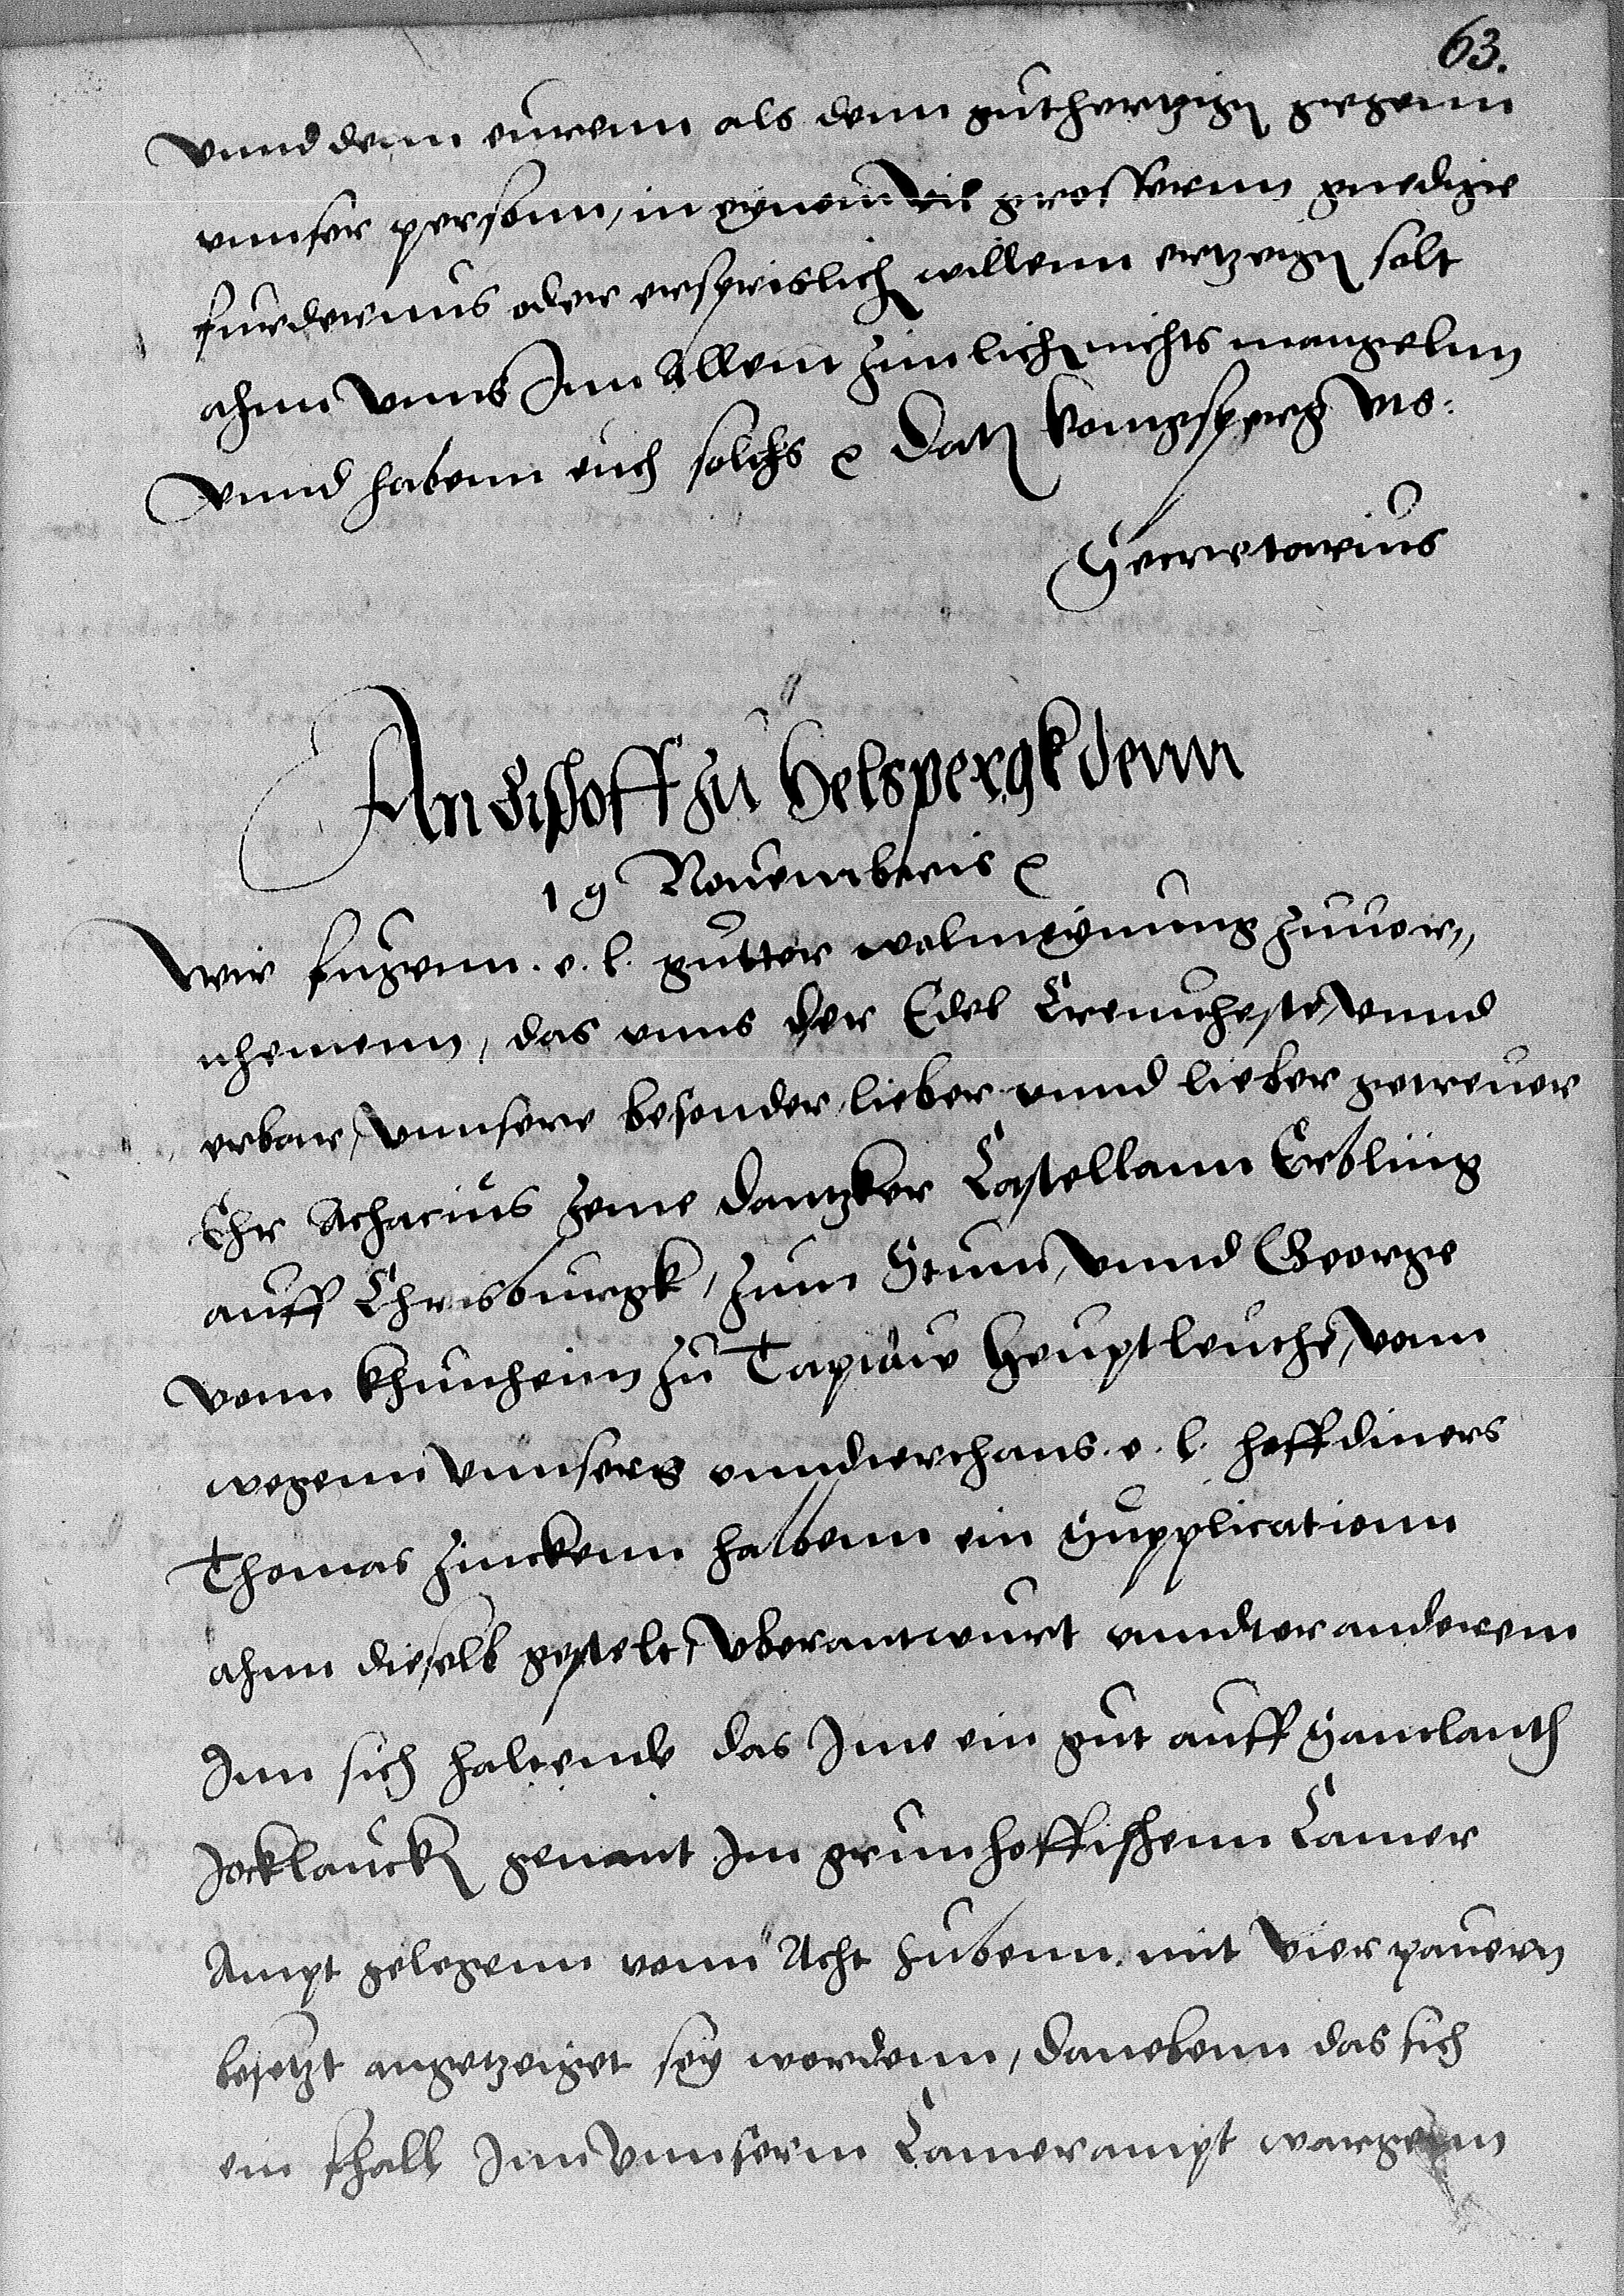 63.
vnnd denn eurenn als denn guthertzigen gegenn
vnnser personn, in eynem vil grossernn gnedige
furdernus oder ersprislich willenn ertzeigen solt
ahnn vnns Inn Allem zimlich nichts mangelnn
Vnnd habenn euch solchs Datum konigsperg vts:
Secretarius
An Bischoff zu Helspergk denn
19 Nouembris
Wir fugenn. e. l. gutter wolmeynung zuuor,,
nhemenn, das vnns der Edel Ernuheste, vnnd
erbar, vnnsere besonder, lieber vnnd lieber getreuer
Ehr Acharius Zeme dantzker Castellann Erbling
auff Chrisburgk, zum Stum, vnnd George
vonn khunheim zu Tapiaw Heuptleuthe, vonn
wegenn vnnsers vnnderthans. e. l. hoffdiners
Thomas Zinckenn halbenn ein Supplicationn
ahnn dieselb gestelt, vberantwurt vnnder anderem
Inn sich haltende das Ime ein gut auff Samlanth
Jocklaucken genant Im grunhoffischenn Camer
Ampt gelegenn vonn Acht hubenn. mit vier pauern
besetzt angetzeiget sey wordenn, danebenn das sich
ein fhall Inn vnnserm Camerampt